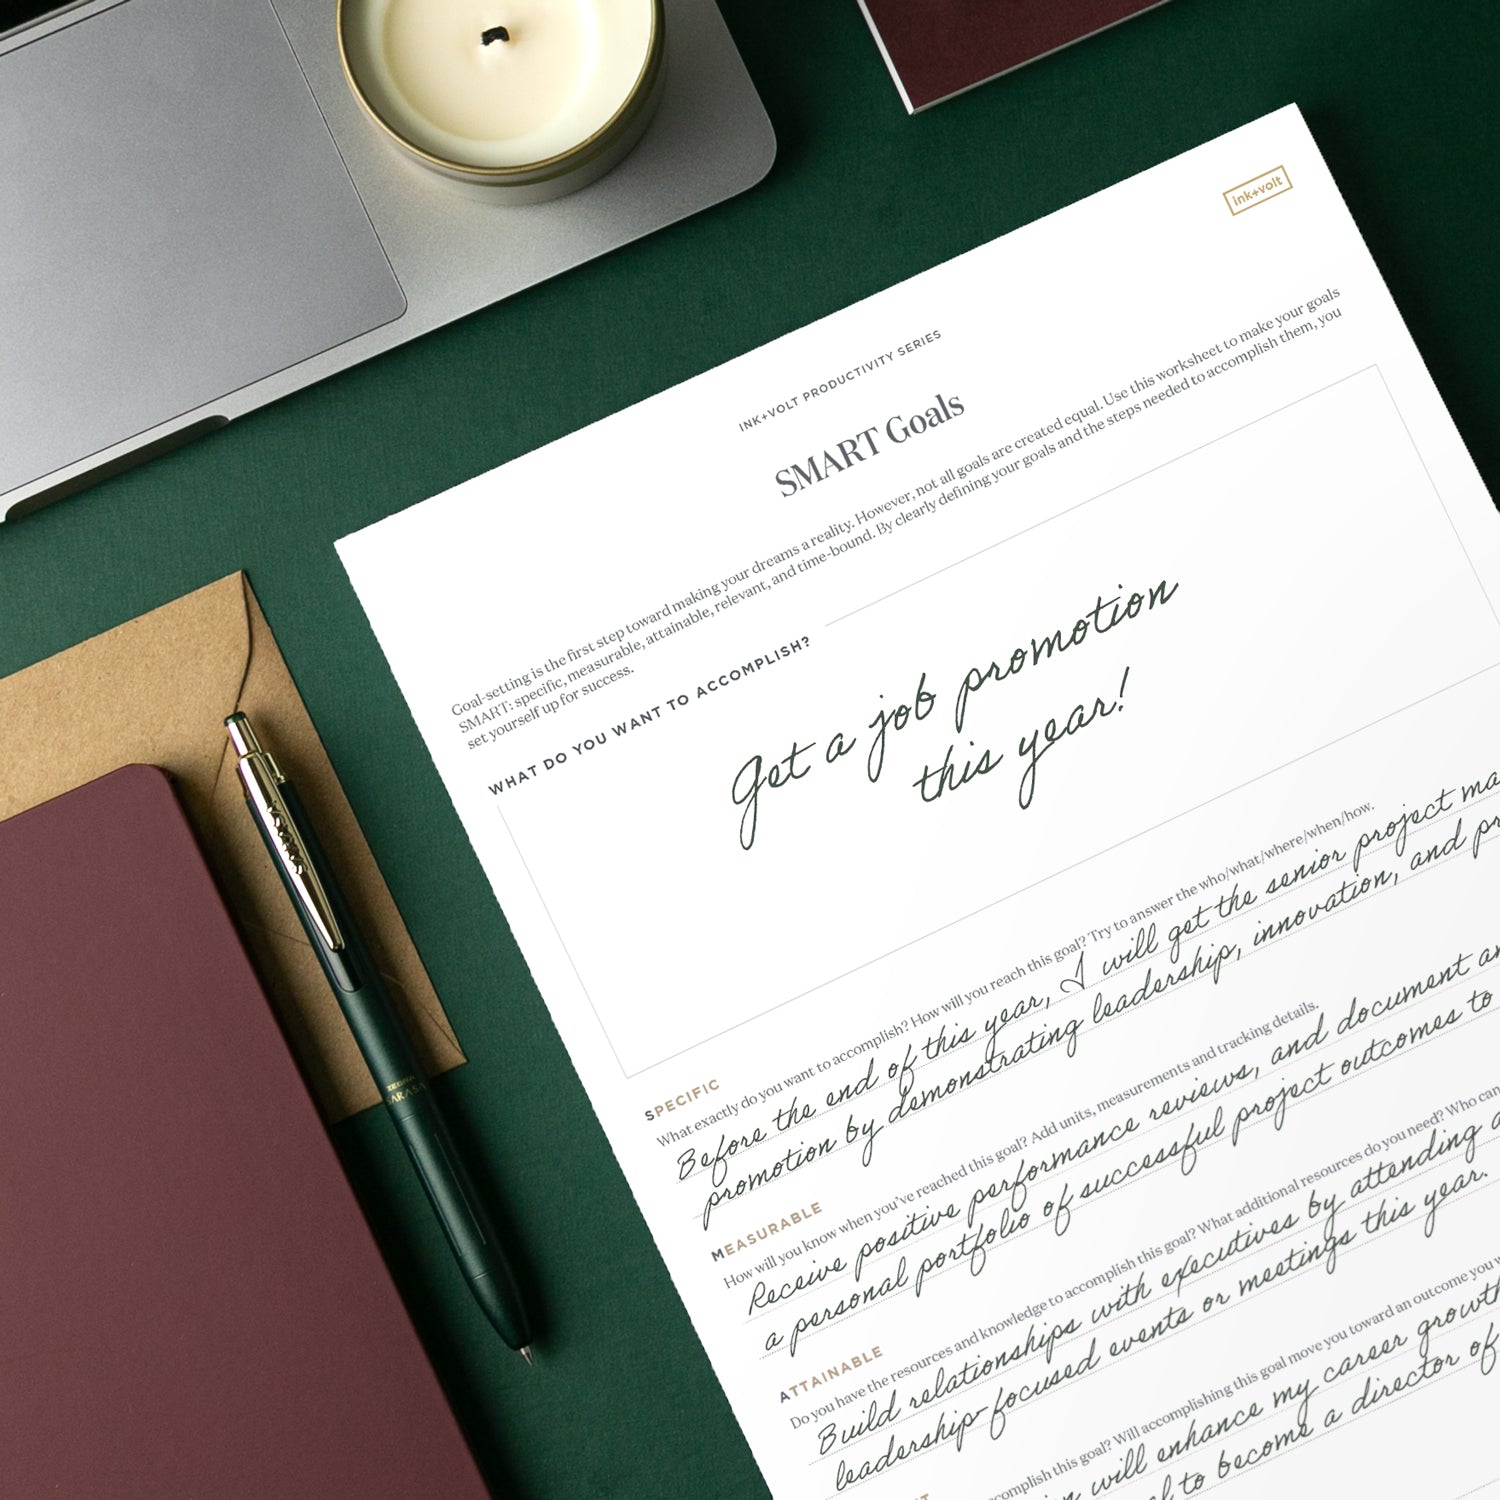 ink+volt
INK+VOLT PRODUCTIVITY SERIES
SMART Goals
Goal-setting is the first step toward making your dreams a reality. However, not all goals are created equal. Use this worksheet to make your goals
SMART: specific, measurable, attainable, relevant, and time-bound. By clearly defining your goals and the steps needed to accomplish them, you
set yourself up for success.
WHAT DO YOU WANT TO ACCOMPLISH?
Get a job promotion
this year!
SPECIFIC
What exactly do you want to accomplish? How will you reach this goal? Try to answer the who/what/where/when/how.
Before the end of this year, I will get the senior project
promotion by demonstrating leadership, innovation, and
MEASURABLE
How will you know when you've reached this goal? Add units, measurements and tracking details.
Receive positive performance reviews, and document
a personal portfolio of successful project outcomes to
ATTAINABLE
Do you have the resources and knowledge to accomplish this goal? What additional resources do you need? Who can
Build relationships with executives by attending
leadership-focused events or meetings this year.
this goal? Will accomplishing this goal move you toward an outcome you
will enhance my career growth
to become a director of
ZEBRA
SARASA